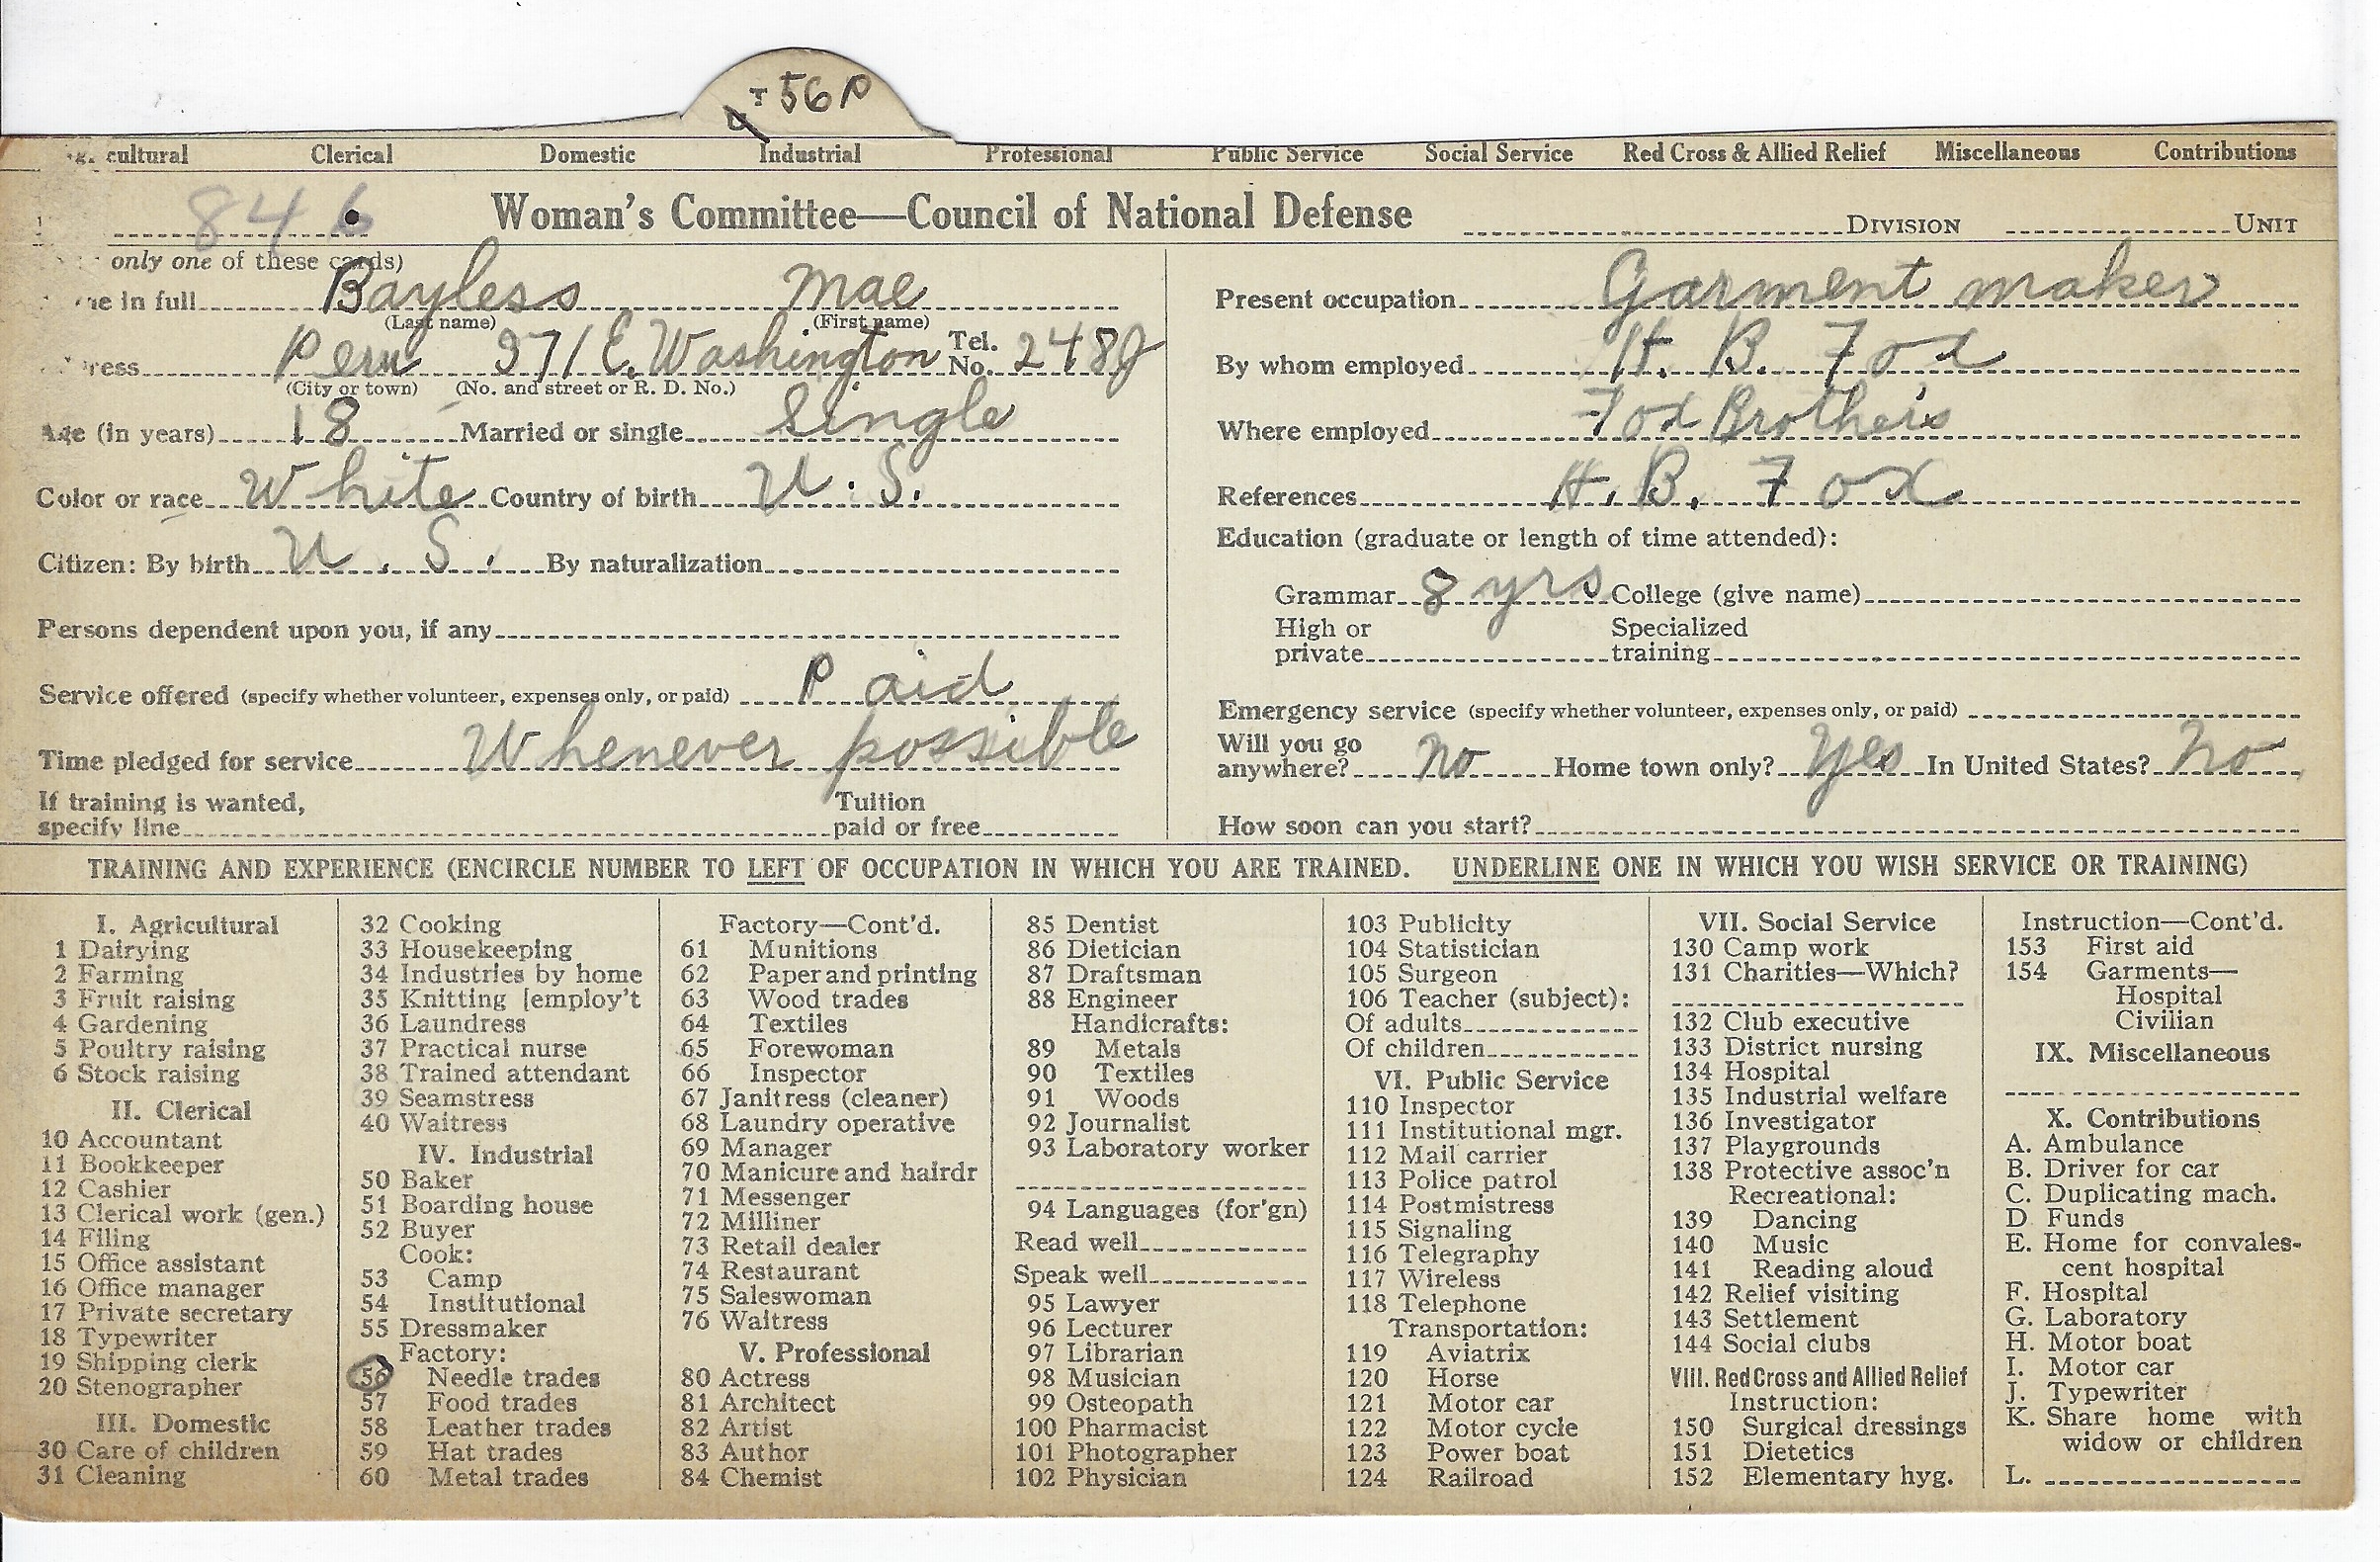 56 P
cultural Clerical Domestic Industrial Professional Public Service Social Service Red Cross & Allied Relief Miscellaneous Contributions
846 Woman's Committee—Council of National Defense DIVISION UNIT
only one of these cards)
in full Bayless Mae
(Last name) (First name)
ress Peru 371 E. Washington Tel. No. 248J
(City or town) (No. and street or R. D. No.)
Age (in years) 18 Married or single Single
Color or race White Country of birth U. S.
Citizen: By birth U. S. By naturalization
Persons dependent upon you, if any
Service offered (specify whether volunteer, expenses only, or paid) Paid
Time pledged for service Whenever possible
If training is wanted, Tuition
specify line paid or free
Present occupation Garment maker
By whom employed H. B. Fox
Where employed Fox Brothers
References H. B. Fox
Education (graduate or length of time attended):
Grammar 8 yrs College (give name)
High or Specialized
private training
Emergency service (specify whether volunteer, expenses only, or paid)
Will you go
anywhere? No Home town only? Yes In United States? No
How soon can you start?
TRAINING AND EXPERIENCE (ENCIRCLE NUMBER TO LEFT OF OCCUPATION IN WHICH YOU ARE TRAINED. UNDERLINE ONE IN WHICH YOU WISH SERVICE OR TRAINING)
I. Agricultural
1 Dairying
2 Farming
3 Fruit raising
4 Gardening
5 Poultry raising
6 Stock raising
II. Clerical
10 Accountant
11 Bookkeeper
12 Cashier
13 Clerical work (gen.)
14 Filing
15 Office assistant
16 Office manager
17 Private secretary
18 Typewriter
19 Shipping clerk
20 Stenographer
III. Domestic
30 Care of children
31 Cleaning
32 Cooking
33 Housekeeping
34 Industries by home
35 Knitting [employ't
36 Laundress
37 Practical nurse
38 Trained attendant
39 Seamstress
40 Waitress
IV. Industrial
50 Baker
51 Boarding house
52 Buyer
Cook:
53 Camp
54 Institutional
55 Dressmaker
Factory:
56 Needle trades
57 Food trades
58 Leather trades
59 Hat trades
60 Metal trades
Factory—Cont'd.
61 Munitions
62 Paper and printing
63 Wood trades
64 Textiles
65 Forewoman
66 Inspector
67 Janitress (cleaner)
68 Laundry operative
69 Manager
70 Manicure and hairdr
71 Messenger
72 Milliner
73 Retail dealer
74 Restaurant
75 Saleswoman
76 Waitress
V. Professional
80 Actress
81 Architect
82 Artist
83 Author
84 Chemist
85 Dentist
86 Dietician
87 Draftsman
88 Engineer
Handicrafts:
89 Metals
90 Textiles
91 Woods
92 Journalist
93 Laboratory worker
94 Languages (for'gn)
Read well
Speak well
95 Lawyer
96 Lecturer
97 Librarian
98 Musician
99 Osteopath
100 Pharmacist
101 Photographer
102 Physician
103 Publicity
104 Statistician
105 Surgeon
106 Teacher (subject):
Of adults
Of children
VI. Public Service
110 Inspector
111 Institutional mgr.
112 Mail carrier
113 Police patrol
114 Postmistress
115 Signaling
116 Telegraphy
117 Wireless
118 Telephone
Transportation:
119 Aviatrix
120 Horse
121 Motor car
122 Motor cycle
123 Power boat
124 Railroad
VII. Social Service
130 Camp work
131 Charities—Which?
132 Club executive
133 District nursing
134 Hospital
135 Industrial welfare
136 Investigator
137 Playgrounds
138 Protective assoc'n
Recreational:
139 Dancing
140 Music
141 Reading aloud
142 Relief visiting
143 Settlement
144 Social clubs
VIII. Red Cross and Allied Relief
Instruction:
150 Surgical dressings
151 Dietetics
152 Elementary hyg.
Instruction—Cont'd.
153 First aid
154 Garments—
Hospital
Civilian
IX. Miscellaneous
X. Contributions
A. Ambulance
B. Driver for car
C. Duplicating mach.
D Funds
E. Home for convales-
cent hospital
F. Hospital
G. Laboratory
H. Motor boat
I. Motor car
J. Typewriter
K. Share home with
widow or children
L.